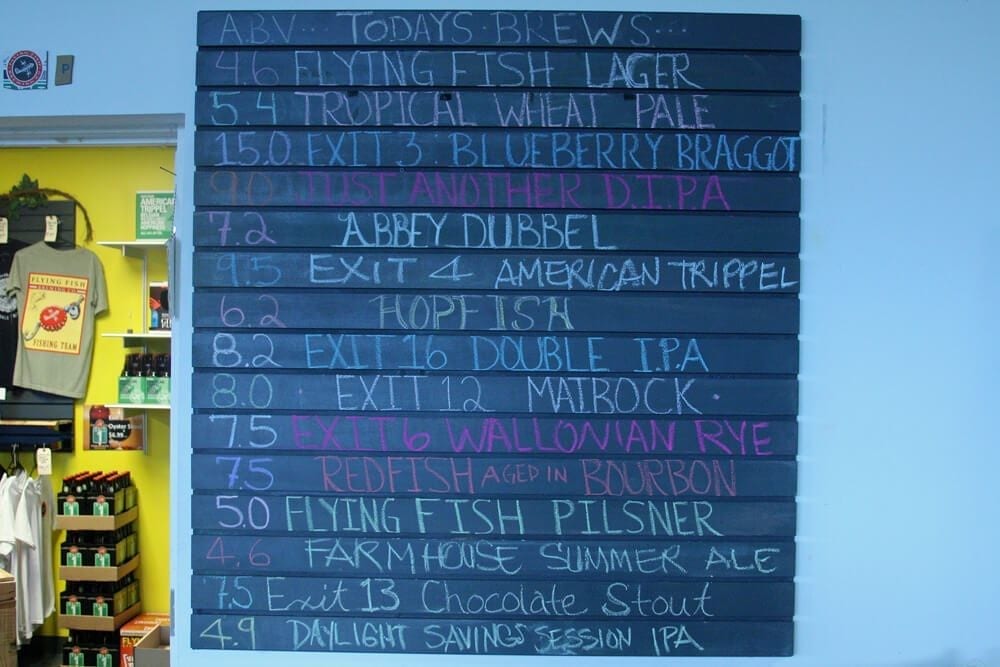 A.B.V... TODAYS BREWS...
4.6 FLYING FISH LAGER
5.4 TROPICAL WHEAT PALE
15.0 EXIT 3 BLUEBERRY BRAGGOT
9.0 JUST ANOTHER D.I.P.A
7.2 ABBEY DUBBEL
9.5 EXIT 4 AMERICAN TRIPPEL
6.2 HOPFISH
8.2 EXIT 16 DOUBLE I.P.A
8.0 EXIT 12 MAIBOCK
7.5 EXIT 6 WALLONIAN RYE
7.5 REDFISH AGED IN BOURBON
5.0 FLYING FISH PILSNER
4.6 FARMHOUSE SUMMER ALE
7.5 Exit 13 Chocolate Stout
4.9 DAYLIGHT SAVINGS SESSION IPA
P
AMERICAN
TRIPPEL
FLYING FISH
BREWING CO.
FISHING TEAM
Oyster
$6.99